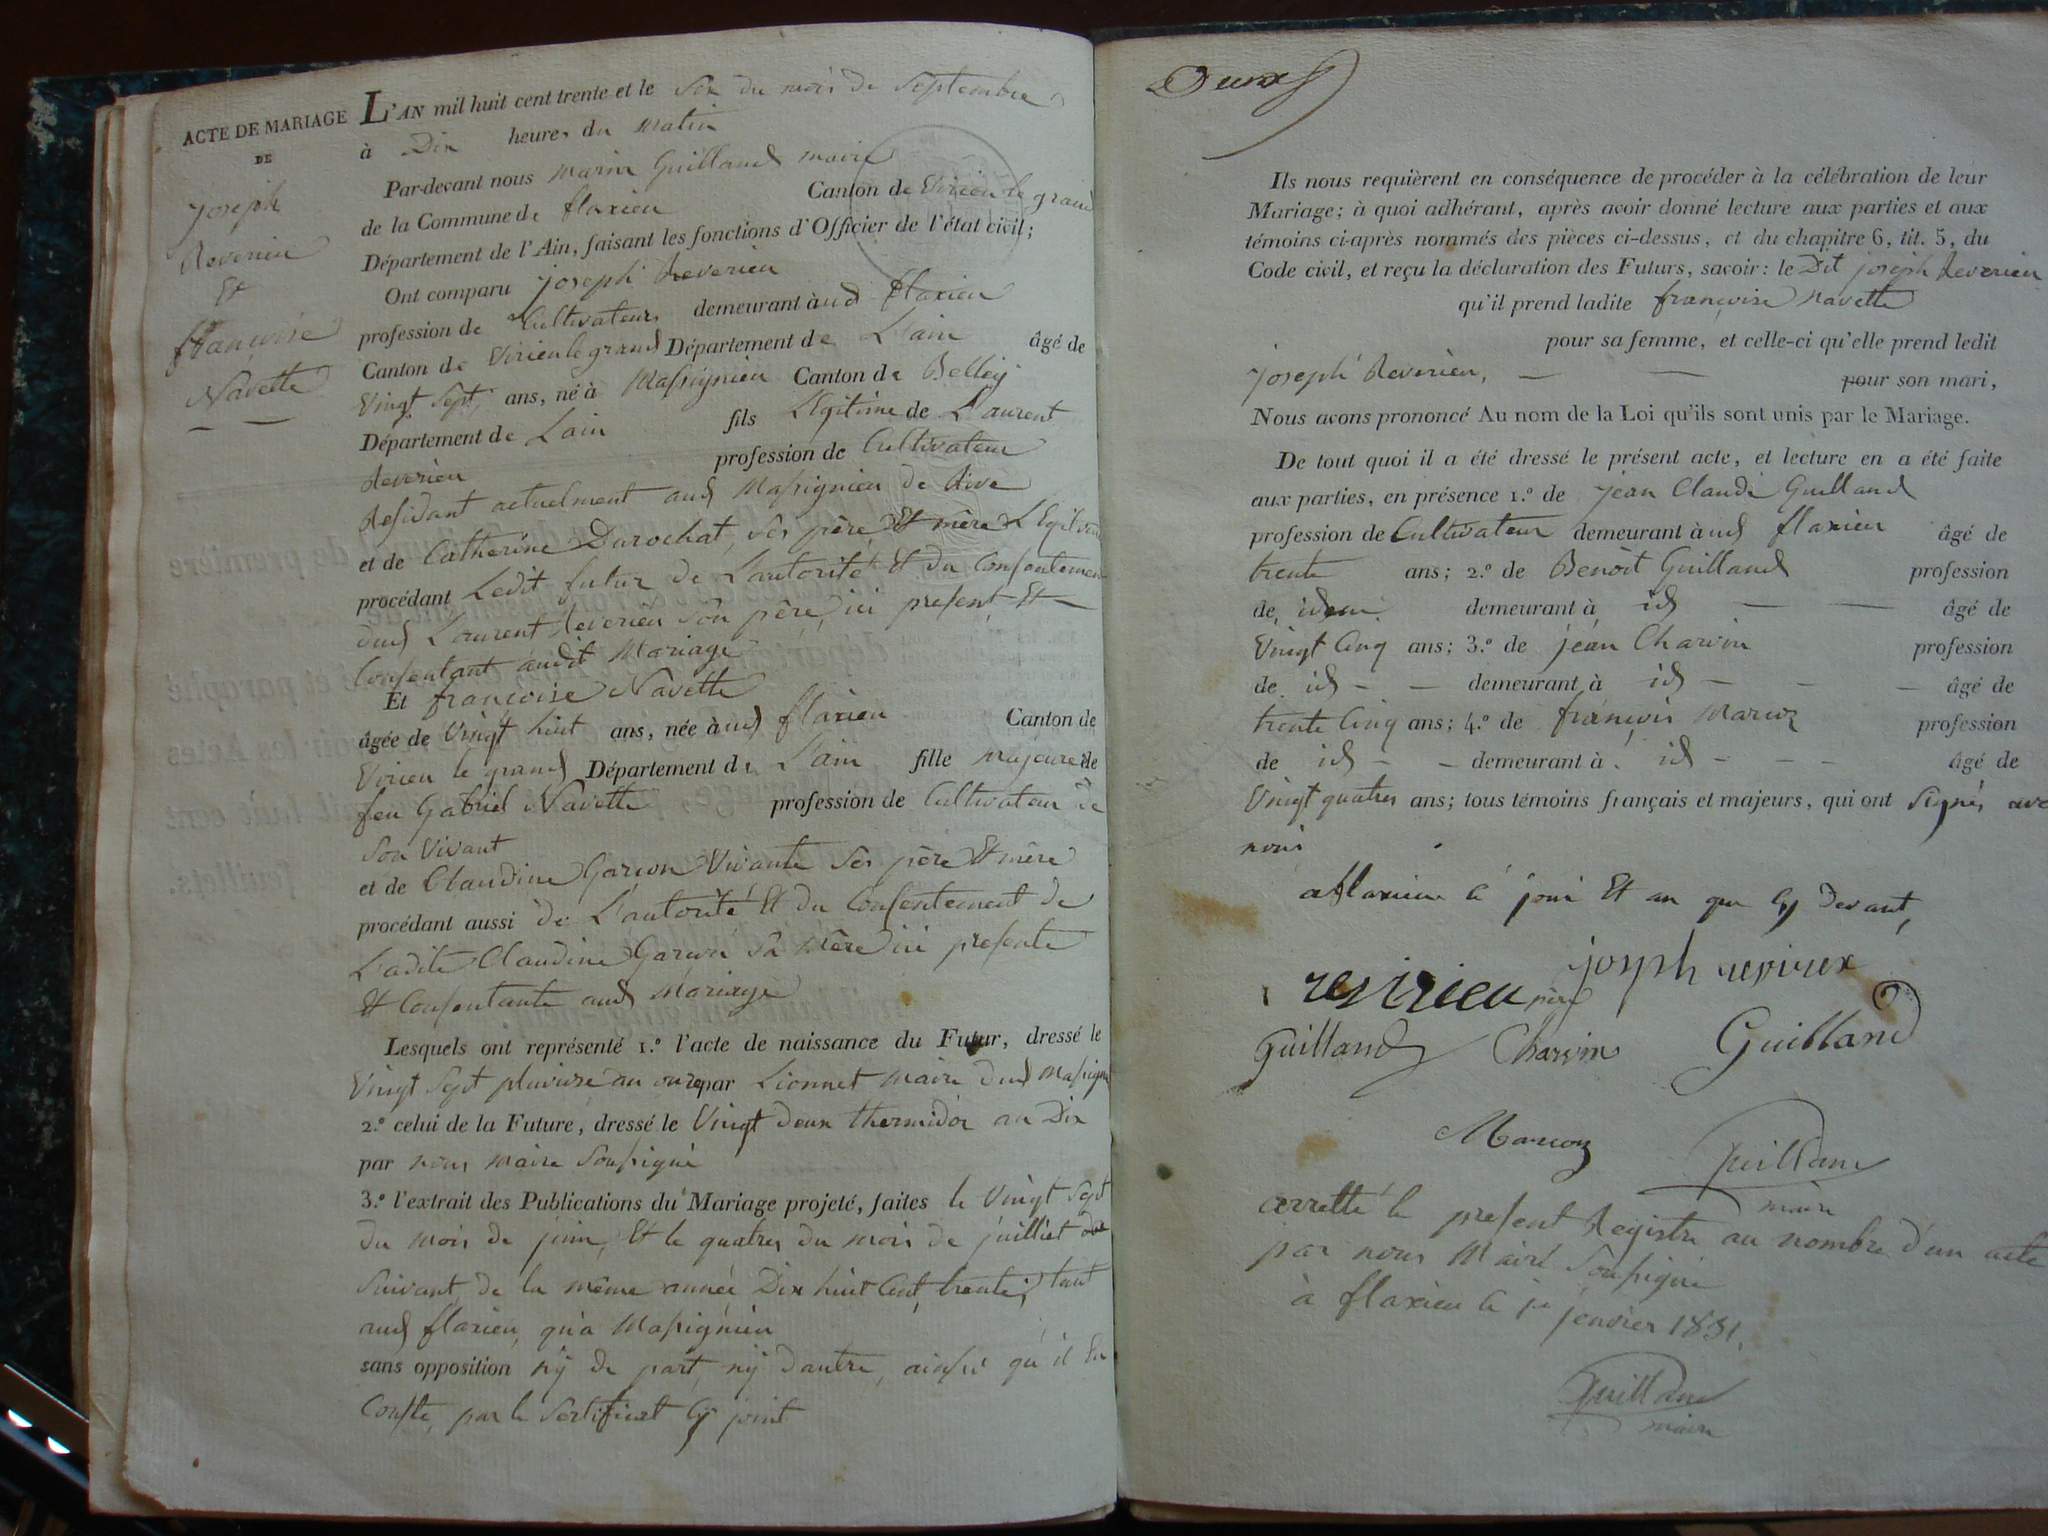 ACTE DE MARIAGE
DE
joseph
Reverieu
Et
françoise
Navette
L'AN mil huit cent trente et le six du mois de Septembre
à Dix heures du Matin
Par-devant nous marin Guilland maire
de la Commune de flaxieu Canton de Virieu le grand
Département de l'Ain, faisant les fonctions d'Officier de l'état civil;
Ont comparu joseph Reverieu
profession de Cultivateur demeurant àud flaxieu
Canton de Virieu le grand Département de L'ain âgé de
Vingt Sept ans, né à Massignieu Canton de Belley
Département de Lain fils Legitime de Laurent
Reverieu profession de Cultivateur
Residant actuelment aud Massignieu de Rive
et de Catherine Durochat, ses père Et mère
procédant Ledit futur de L'autorité Et du Consentement
dud Laurent Reverieu Son père, ici present Et
Consentant audit Mariage
Et françoise Navette
âgée de Vingt huit ans, née àud flaxieu Canton de
Virieu le grand Département de L'ain fille majeure de
feu Gabriel Navette profession de Cultivateur de
Son Vivant
et de Claudine Garçon Vivante Ses père Et mère
procédant aussi de L'autorité Et du Consentement de
Ladite Claudine Garçon Sa Mère ici presente
Et Consentante aud Mariage
Lesquels ont représenté 1.º l'acte de naissance du Futur, dressé le
Vingt Sept pluviose an onze par Lionnet maire dud
2.º celui de la Future, dressé le Vingt deux thermidor an Dix
par nous maire Soussigné
3.º l'extrait des Publications du Mariage projeté, faites le Vingt Sept
du mois de juin, Et le quatres du mois de juilliet
Suivant, de la même année Dix huit Cent trente, tant
aud flaxieu, qu'a Massignieu
sans opposition ny de part, ny dautre, ainssi qu'il En
Conste, par le Sertificat Cy joint
Deux
Ils nous requièrent en conséquence de procéder à la célébration de leur
Mariage; à quoi adhérant, après avoir donné lecture aux parties et aux
témoins ci-après nommés des pièces ci-dessus, et du chapitre 6, tit. 5, du
Code civil, et reçu la déclaration des Futurs, savoir: le Dit joseph Reverieu
qu'il prend ladite françoise Navette
pour sa femme, et celle-ci qu'elle prend ledit
joseph Reverieu, — — pour son mari,
Nous avons prononcé Au nom de la Loi qu'ils sont unis par le Mariage.
De tout quoi il a été dressé le présent acte, et lecture en a été faite
aux parties, en présence 1.º de jean Claude Guilland
profession de Cultivateur demeurant àud flaxieu âgé de
trente ans; 2.º de Benoit Guilland profession
de idem demeurant à id — — âgé de
Vingt Cinq ans; 3.º de jean Charvin profession
de id — — demeurant à id — — — âgé de
trente Cinq ans; 4.º de françois Marcoz profession
de id — — demeurant à id — — — âgé de
Vingt quatres ans; tous témoins français et majeurs, qui ont Signés avec
nous
a flaxieu le jour Et an que Cy devant,
joseph
revirieu père
Guilland Charvin Guilland
Marcoz Guilland
maire
arretté le present Registre au nombre d'un acte
par nous Maire Soussigné
à flaxieu le 1er jenvier 1831.
Guilland
maire